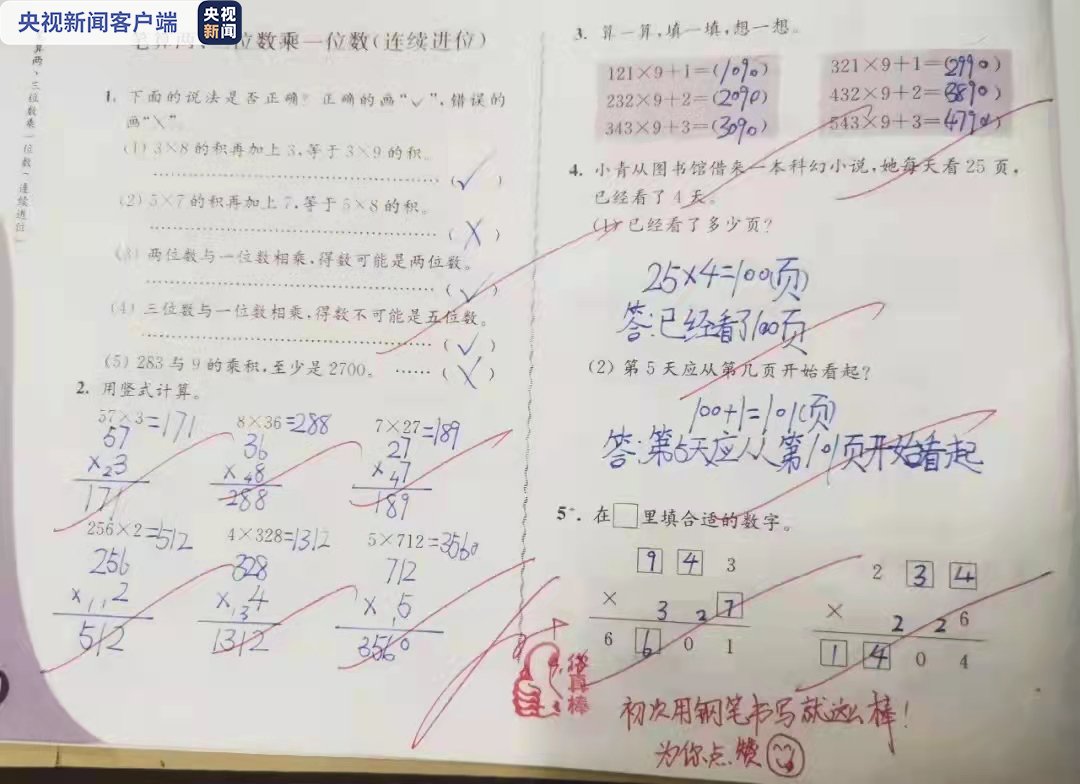 央视新闻客户端
央视
新闻
笔算两、三位数乘一位数(连续进位)
1. 下面的说法是否正确?正确的画“✓”,错误的
画“╲”。
(1) 3×8的积再加上3,等于3×9的积。
(✓)
(2) 5×7的积再加上7,等于5×8的积。
(X)
(3) 两位数与一位数相乘,得数可能是两位数。
(✓)
(4) 三位数与一位数相乘,得数不可能是五位数。
(✓)
(5) 283与9的乘积,至少是2700。 …… (X)
2. 用竖式计算。
57×3=171 8×36=288 7×27=189
57 36 27
×₂3 ×₄8 ×₄7
171 288 189
256×2=512 4×328=1312 5×712=3560
256 328 712
×₁₁2 ×₁₃4 ×₁5
512 1312 3560
3. 算一算,填一填,想一想。
121×9+1=(1090) 321×9+1=(2990)
232×9+2=(2090) 432×9+2=(3890)
343×9+3=(3090) 543×9+3=(4790)
4. 小青从图书馆借来一本科幻小说,她每天看25页,
已经看了4天。
(1) 已经看了多少页?
25×4=100(页)
答:已经看了100页
(2) 第5天应从第几页开始看起?
100+1=101(页)
答:第5天应从第101页开始看起
5*. 在□里填合适的数字。
9 4 3 2 3 4
× 3 2 7 × 2 2 6
6 6 0 1 1 4 0 4
你真棒
初次用钢笔书写就这么棒!
为你点赞